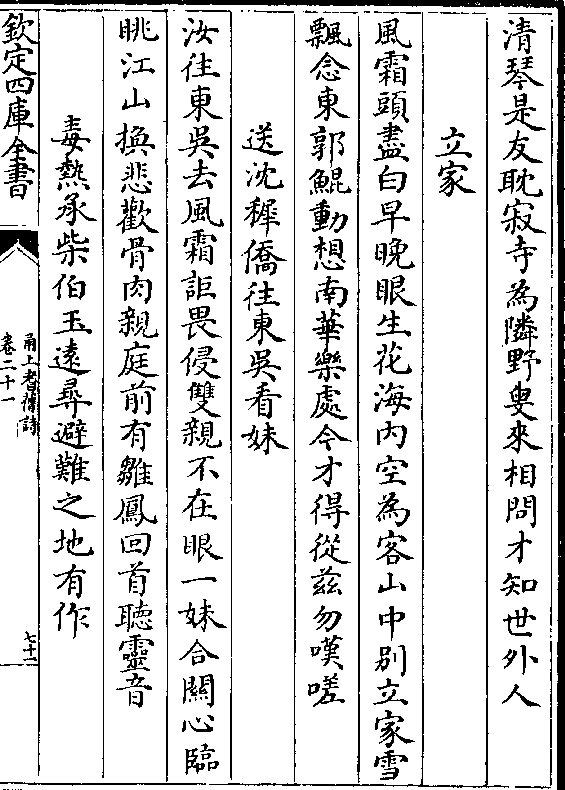 清琴是友耽寂寺為隣野叟來相問才知世外人
立家
風霜頭盡白早晚眼生花海内空為客山中别立家雪
飄念東郭鯤動想南華樂處今才得從兹勿嘆嗟
送沈穉僑往東吳看妹
汝往東吳去風霜詎畏侵雙親不在眼一妹合關心臨
眺江山換悲歡骨肉親庭前有雛鳳回首聽靈音
毒熱承柴伯玉遠尋避難之地有作
欽定四庫全書
甬上耆舊詩
卷二十一
七十一